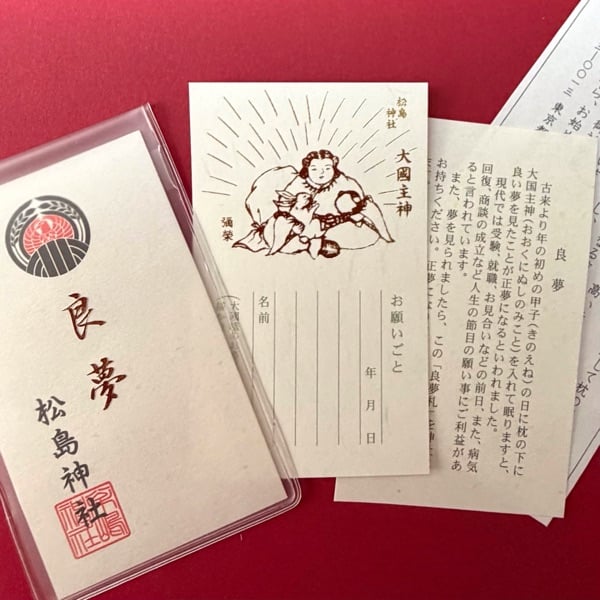 良夢
松島神社
松島
神社
大國主神
彌榮
お願いごと
年 月 日
名前
良 夢
古来より年の初めの甲子(きのえね)の日に枕の下に
大国主神(おおくにぬしのみこと)を入れて眠りますと、
良い夢を見たことが正夢になるといわれました。
現代では受験、就職、お見合いなどの前日、また、病気
回復、商談の成立など人生の節目の願い事にご利益があ
ると言われています。
また、夢を見られましたら、この「良夢札」を神
お持ちください。正夢にな
東京都